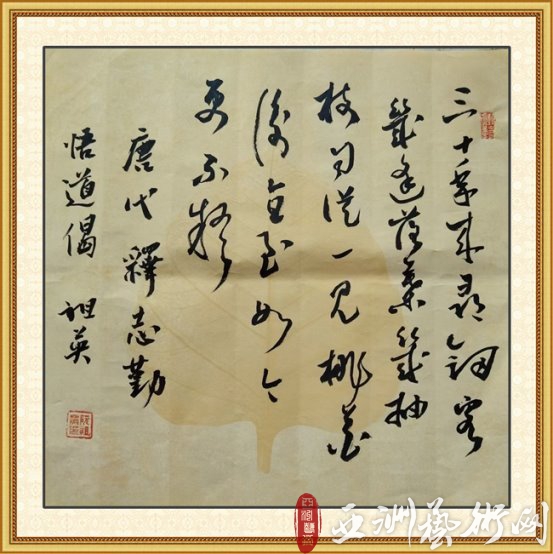 三十年来尋劍客
幾逢落葉幾抽
枝自從一見桃花
後直至如今
更不疑
唐代釋志勤
悟道偈 祖英
亚洲藝術网